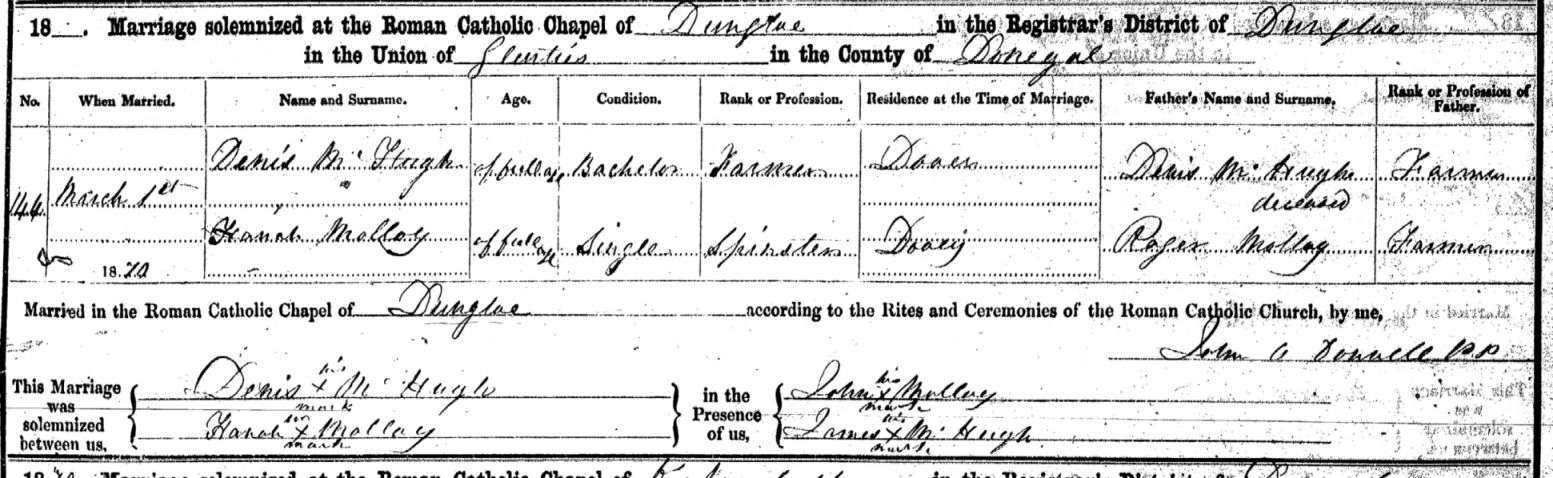 18 . Marriage solemnized at the Roman Catholic Chapel of Dungloe in the Registrar's District of Dungloe
in the Union of Glenties in the County of Donegal
No. When Married. Name and Surname. Age. Condition. Rank or Profession. Residence at the Time of Marriage. Father's Name and Surname. Rank or Profession of Father.
144 March 1st 1870 Denis Mc Hugh of full age Bachelor Farmer Dooey Denis Mc Hugh deceased Farmer
Hanah Molloy of full age Single Spinster Dooey Roger Molloy Farmer
Married in the Roman Catholic Chapel of Dungloe according to the Rites and Ceremonies of the Roman Catholic Church, by me,
John O Donnell P.P
This Marriage was solemnized between us, Denis his x mark Mc Hugh in the Presence of us, John his x mark Molloy
Hanah her x mark Molloy James his x mark Mc Hugh
Marriage solemnized at the Roman Catholic Chapel of in the Registrar's District of